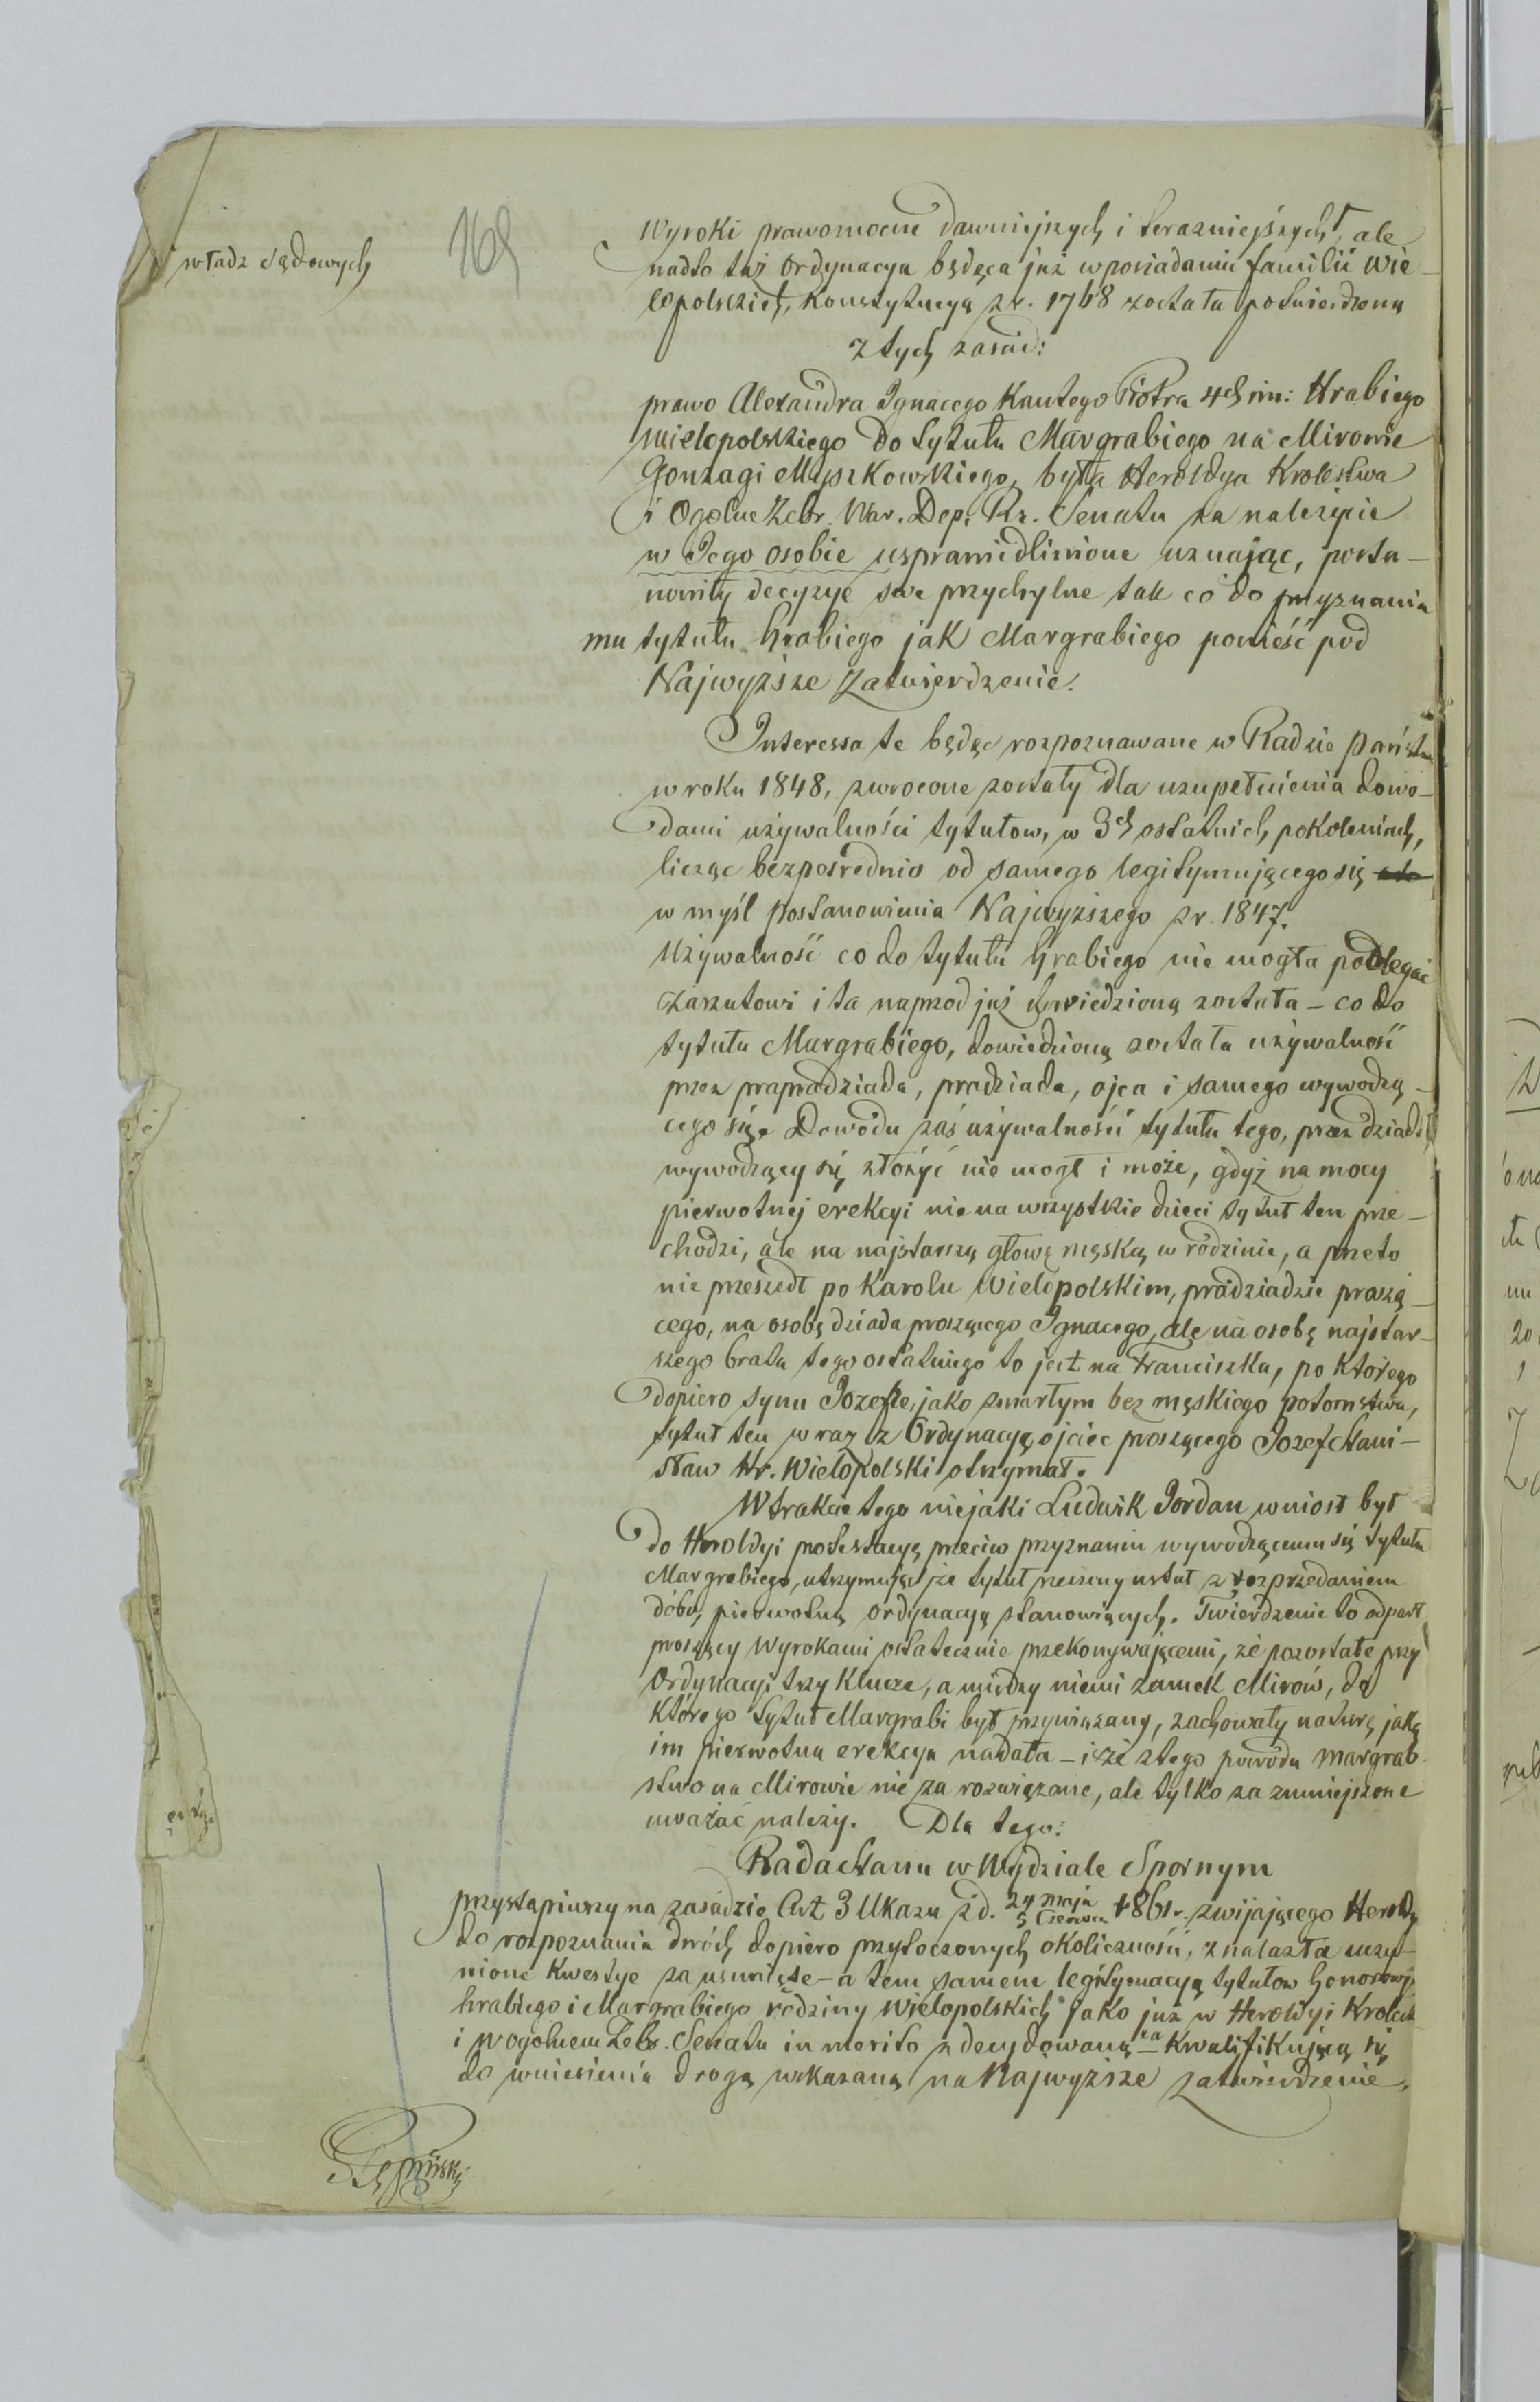 władz sądowych
169
Wyroki prawomocne dawniejszych i teraźniejszych, ale
nadto taż Ordynacya będąca już w posiadaniu familii Wie-
lopolskich, Konstytucyą z r. 1768 została potwierdzoną
Z tych zasad:
prawo Alexandra Ignacego Kantego Piotra 4ch im: Hrabiego
Wielopolskiego do tytułu Margrabiego na Mirowie
Gonzagi Myszkowskiego, była Heroldya Krolestwa
i Ogolne Zebr. War. Dep. Rz. Senatu za należycie
w Jego osobie usprawiedlinione uznając, posta-
nowiły decyzye swe przychylne tak co do przyznania
mu tytułu Hrabiego jak Margrabiego ponieść pod
Najwyższe Zatwierdzenie.
Interessa te będąc rozpoznawane w Radzie Państwa
w roku 1848, zwrocone zostały dla uzupełnienia dowo-
dami używalności tytułow, w 3ch ostatnich pokoleniach,
licząc bezpośrednio od samego legitymującego się
w myśl postanowienia Najwyższego z r. 1847.
Używalność co do tytułu Hrabiego nie mogła podlegać
zarzutowi i ta naprzod już dowiedzioną została – co do
tytułu Margrabiego, dowiedzioną została używalność
przez prapradziada, pradziada, ojca i samego wywodzą-
cego się. Dowodu zaś używalności tytułu tego, przez dziada
wywodzący się złożyć nie mogł i może, gdyż na mocy
pierwotnej erekcyi nie na wszystkie dzieci tytuł ten prze-
chodzi, ale na najstarszą głowę męską w rodzinie, a przeto
nie przeszedł po Karolu Wielopolskim, pradziadzie proszą-
cego, na osobę dziada proszącego Ignacego, ale na osobę najstar-
szego brata tego ostatniego to jest na Franciszka, po którego
dopiero synu Jozefie, jako zmarłym bez męskiego potomstwa,
tytuł ten wraz z Ordynacyą ojciec proszącego Jozef Stani-
sław Hr. Wielopolski otrzymał.
W trakcie tego niejaki Ludwik Jordan wniosł był
do Heroldyi protestacyą przeciw przyznaniu wywodzącemu się tytułu
Margrabiego, utrzymując że tytuł rzeczony ustał z rozprzedaniem
dóbr, pierwotną ordynacyą stanowiących. Twierdzenie to odparł
proszący Wyrokami ostatecznie przekonywającemi, że pozostałe przy
Ordynacyi trzy Klucze, a między niemi zamek Mirów, do
którego tytuł Margrabi był przywiązany, zachowały naturę jaką
im pierwotna erekcya nadała – i że z tego powodu Margrab-
stwo na Mirowie nie za rozwiązane, ale tylko za zmniejszone
uważać należy. Dla tego:
Rada Stanu w Wydziale Spornym
przystąpiwszy na zasadzie Art 3 Ukazu z d. 24 Maja
5 Czerwca 1861 r. zwijającego Heroldy
do rozpoznania dwóch dopiero przytoczonych okoliczności, znalazła uczy-
nione kwestye za usunięte – a tem samem legitymacyą tytułow honorowych
hrabiego i Margrabiego rodziny Wielopolskich jako już w Heroldyi Krolest
i w ogolnem Zebr. Senatu in merito zdecydowaną – za kwalifikującą się
do wniesienia drogą wskazaną na Najwyższe zatwierdzenie.